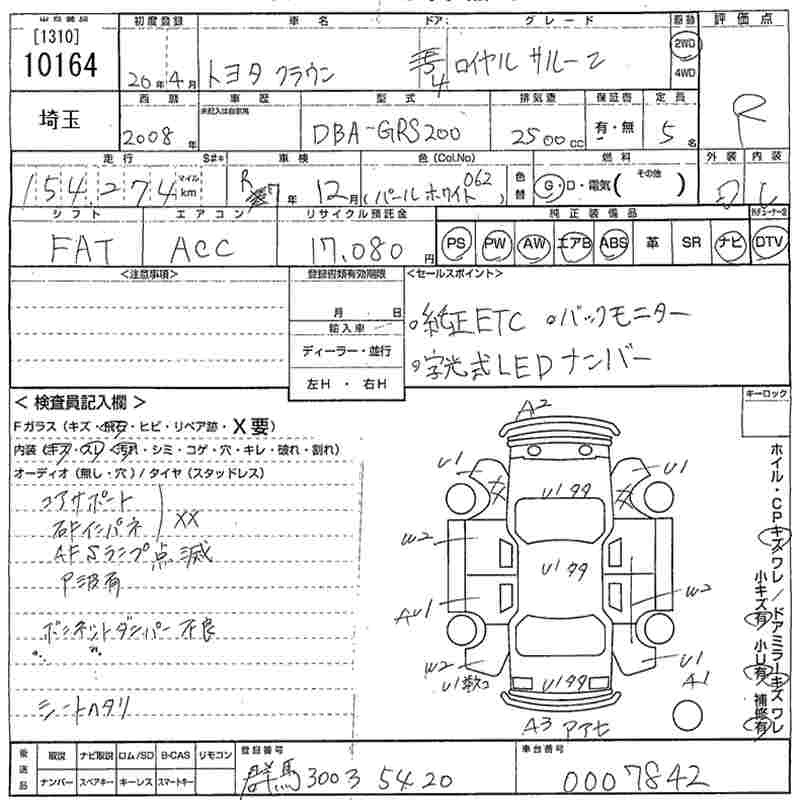 出品番号 初度登録 車名 ドア: グレード 駆動 評価点
[1310]
10164 20年4月 トヨタ クラウン 4 ロイヤル サルーン 2WD 4WD R
埼玉 西暦 車歴 型式 排気量 保証書 定員
未記入は自家用
2008年 DBA-GRS200 2500cc 有・無 5名
走行 S#* 車検 色(Col.No) 燃料 外装 内装
154,274 マイル km R 7年 12月 (パールホワイト 062) 色替 G・D・電気( その他 ) D C
シフト エアコン リサイクル預託金 純正装備品
FAT ACC 17,080円 PS PW AW エアB ABS 革 SR ナビ DTV
<注意事項> 登録書類有効期限 <セールスポイント>
月 日
輸入車
ディーラー・並行
左H・右H
。純正ETC 。バックモニター
。字光式LEDナンバー
< 検査員記入欄 >
Fガラス (キズ・飛石・ヒビ・リペア跡・X要)
内装 (キズ・スレ・汚れ・シミ・コゲ・穴・キレ・破れ・割れ)
オーディオ (無し・穴) / タイヤ (スタッドレス)
コアサポート
右Fインパネ XX
AFSランプ点滅
P波有
ボンネットダンパー不良
シートヘタリ
キーロック
ホイル・CPキズワレ/ドアミラーキズワレ
小キズ有 小U有 補修有
A2
U1 U1
U1タタ
W2
U1タタ
W2
AU1
W2 U1
U1数コ U1タタ A1
A3 アアヒ
後送品 取説 ナビ取説 ロム/SD B-CAS リモコン 登録番号 車台番号
ナンバー スペアキー キーレス スマートキー 群馬 300 3 54 20 0007842